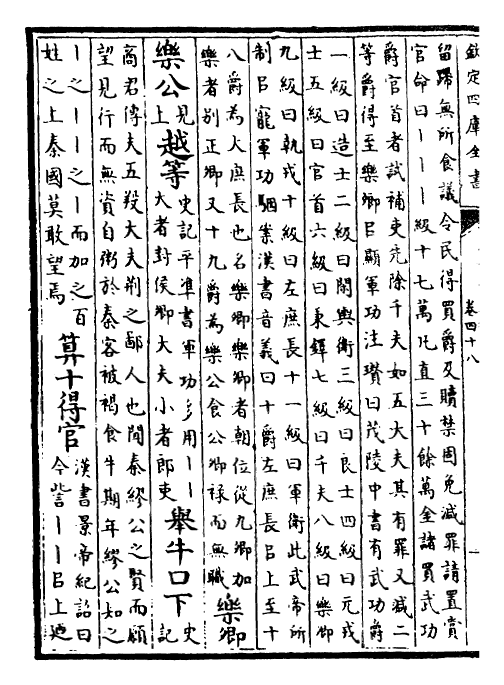 欽定四庫全書
卷四十八
留蹛無所食議令民得買爵及贖禁固免減罪請置賞
官命曰丨丨丨級十七萬凡直三十餘萬金諸買武功
爵官首者試補吏先除千夫如五大夫其有罪又減二
等爵得至樂卿㠯顯軍功注瓚曰茂陵中書有武功爵
一級曰造士二級曰閑輿衛三級曰良士四級曰元戎
士五級曰官首六級曰秉鐸七級曰千夫八級曰樂卿
九級曰執戎十級曰左庶長十一級曰軍衛此武帝所
制㠯寵軍功駰案漢書音義曰十爵左庶長㠯上至十
八爵為大庶長也名樂卿樂卿者朝位從九卿加
樂者別正卿又十九爵為樂公食公卿祿而無職
樂卿
樂公
見
上
越等
史記平準書軍功多用丨丨
大者封侯卿大夫小者郎吏
舉牛口下
史
記
商君傳夫五羖大夫荆之鄙人也聞秦繆公之賢而願
望見行而無資自粥於秦客被褐食牛期年繆公知之
丨之丨丨之丨而加之百
姓之上秦國莫敢望焉
算十得官
漢書景帝紀詔曰
今訾丨丨㠯上迺